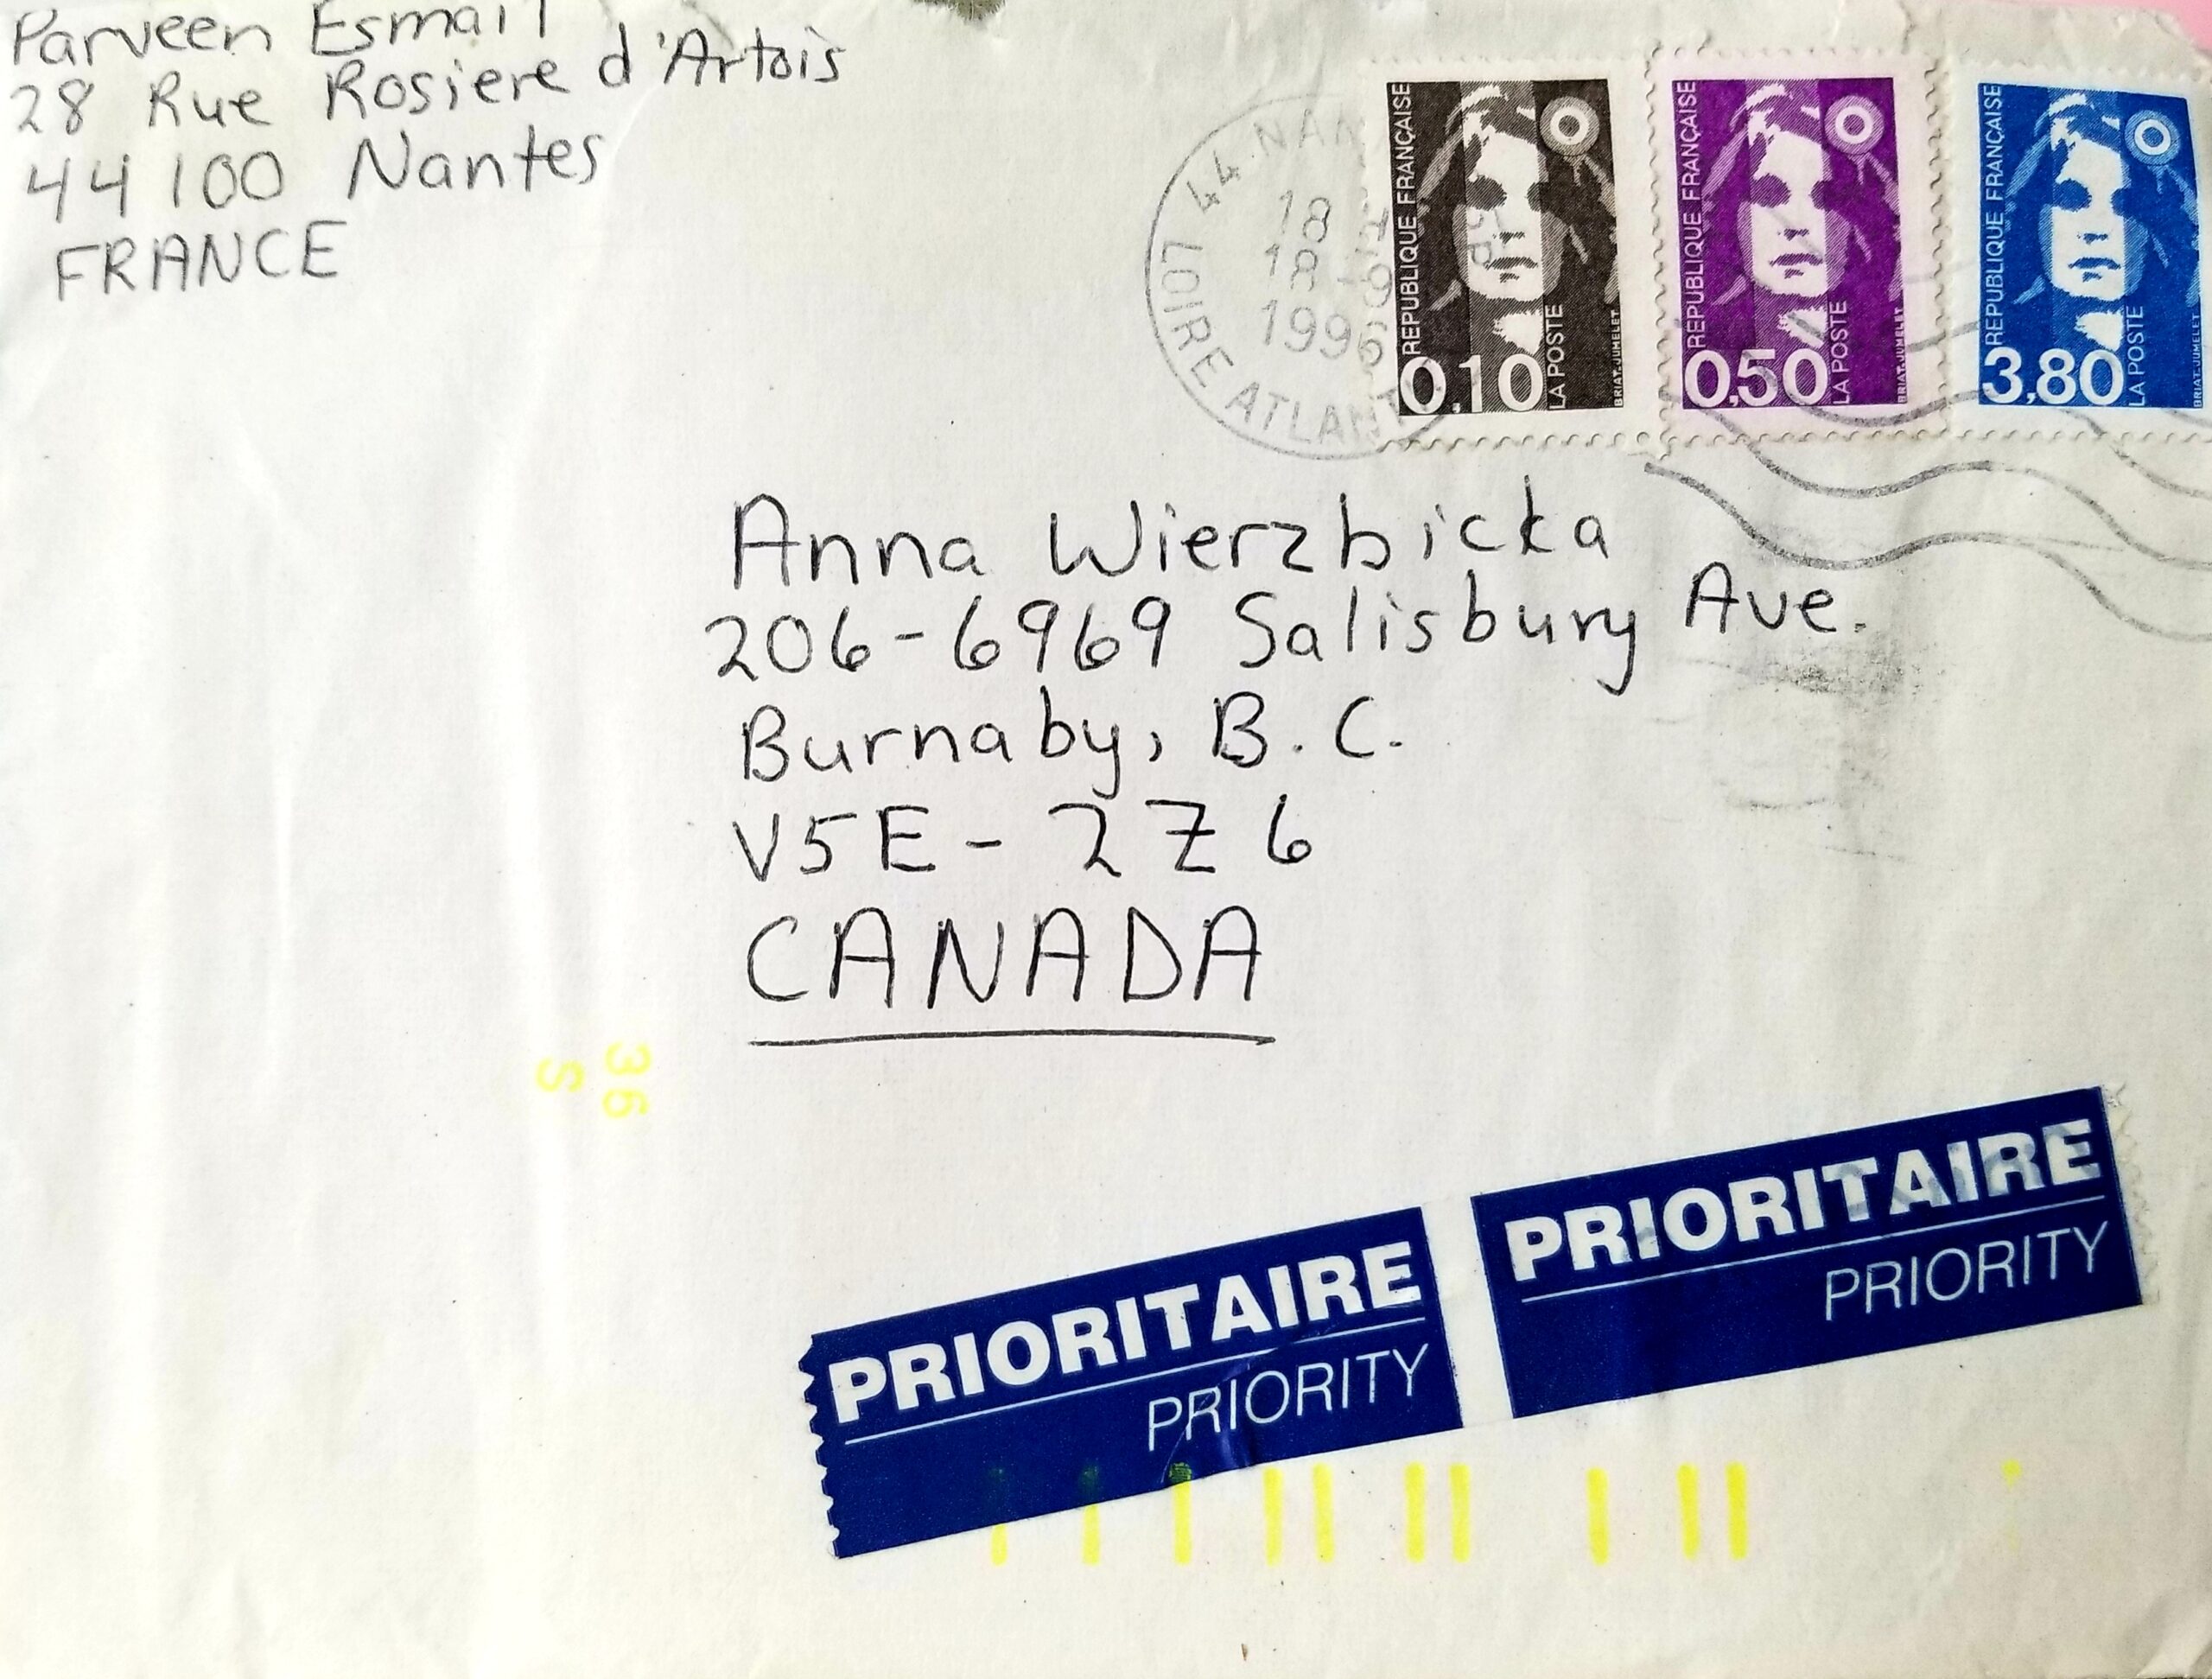 Parveen Esmail
28 Rue Rosiere d'Artois
44100 Nantes
FRANCE
44 NAN
18
18 - 9
1996
LOIRE ATLANT
REPUBLIQUE FRANÇAISE
0,10
LA POSTE
BRIAT.JUMELET
REPUBLIQUE FRANÇAISE
0,50
LA POSTE
BRIAT.JUMELET
REPUBLIQUE FRANÇAISE
3,80
LA POSTE
BRIAT.JUMELET
Anna Wierzbicka
206-6969 Salisbury Ave.
Burnaby, B.C.
V5E - 2Z6
CANADA
36
S
PRIORITAIRE
PRIORITY
PRIORITAIRE
PRIORITY